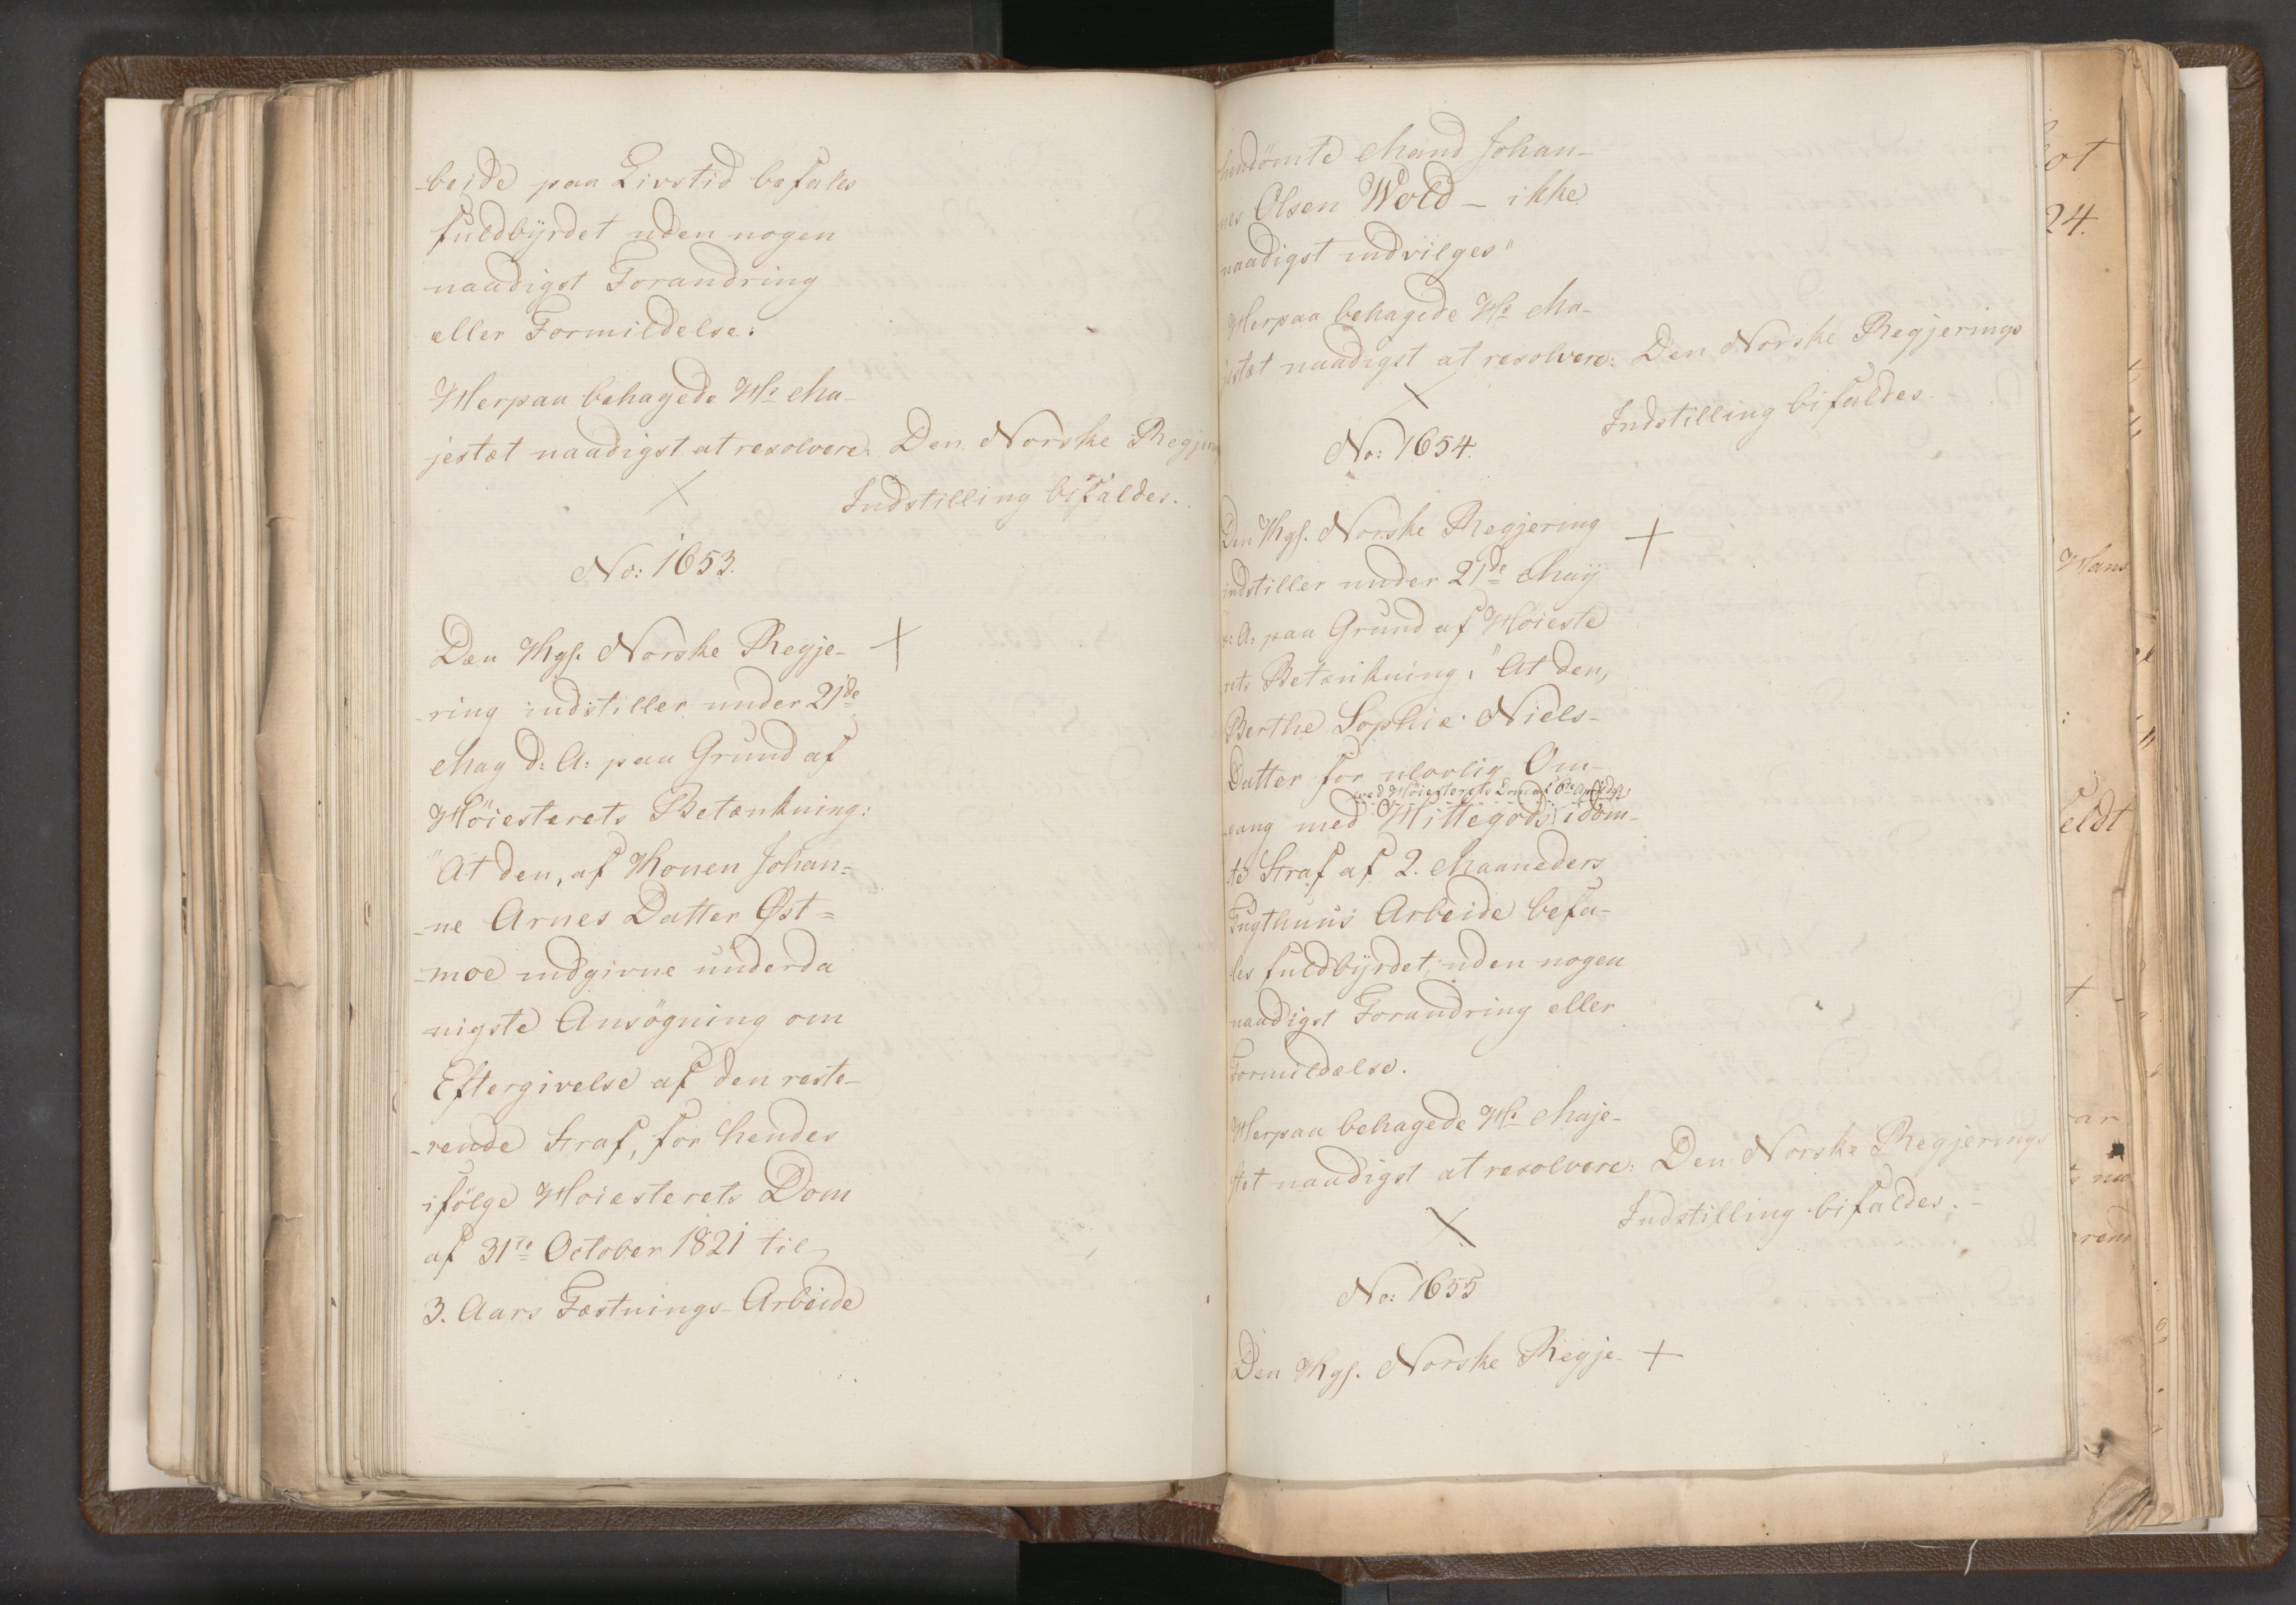 -beide paa Livstid befales
fuldbÿrdet uden nogen
naadigst Forandring
eller Formildelse:
Herpaa behagede Hs Ma-
jestæt naadigst at resolvere: Den Norske Regjer
Indstilling bifaldes.
No: 1653.
Den Kgl. Norske Regje-
-ring indstiller under 21de
May d: A: paa Grund af
Höiesterets Betænkning:
"At den, af Konen Johan=
-ne Arnes Datter Øst=
-moe indgivne underda
nigste Ansögning om
Eftergivelse af den reste-
-rende Straf, for hendes
ifölge Höiesterets Dom
af 31te October 1821 til
3. Aars Fæstnings-Arbeide
hendömte Mand Johan-
nes Olsen Wold - ikke
naadigst indvilges"
Herpaa behagede Hs Ma-
jestæt naadigst at resolvere: Den Norske Regjerings
Indstilling bifaldes.
No: 1654.
Den Kgl. Norske Regjering
indstiller under 21de Maÿ
d: A: paa Grund af Höieste
rets Betænkning: "At den,
Berthe Sophie Niels-
Datter for ulovlig Om-
ved Höiesterets Dom af 6te
gang med Hittegods idöm-
te Straf af 2. Maaneders
Tugthuus Arbeide befa-
les fuldbÿrdet, uden nogen
naadigst Forandring eller
Formildelse.
Herpaa behagede Hs Maje-
stæt naadigst at resolvere: Den Norske Regjerings
Indstilling bifaldes. -
No: 1655
Den Kgl. Norske Regje-
24.
Hans